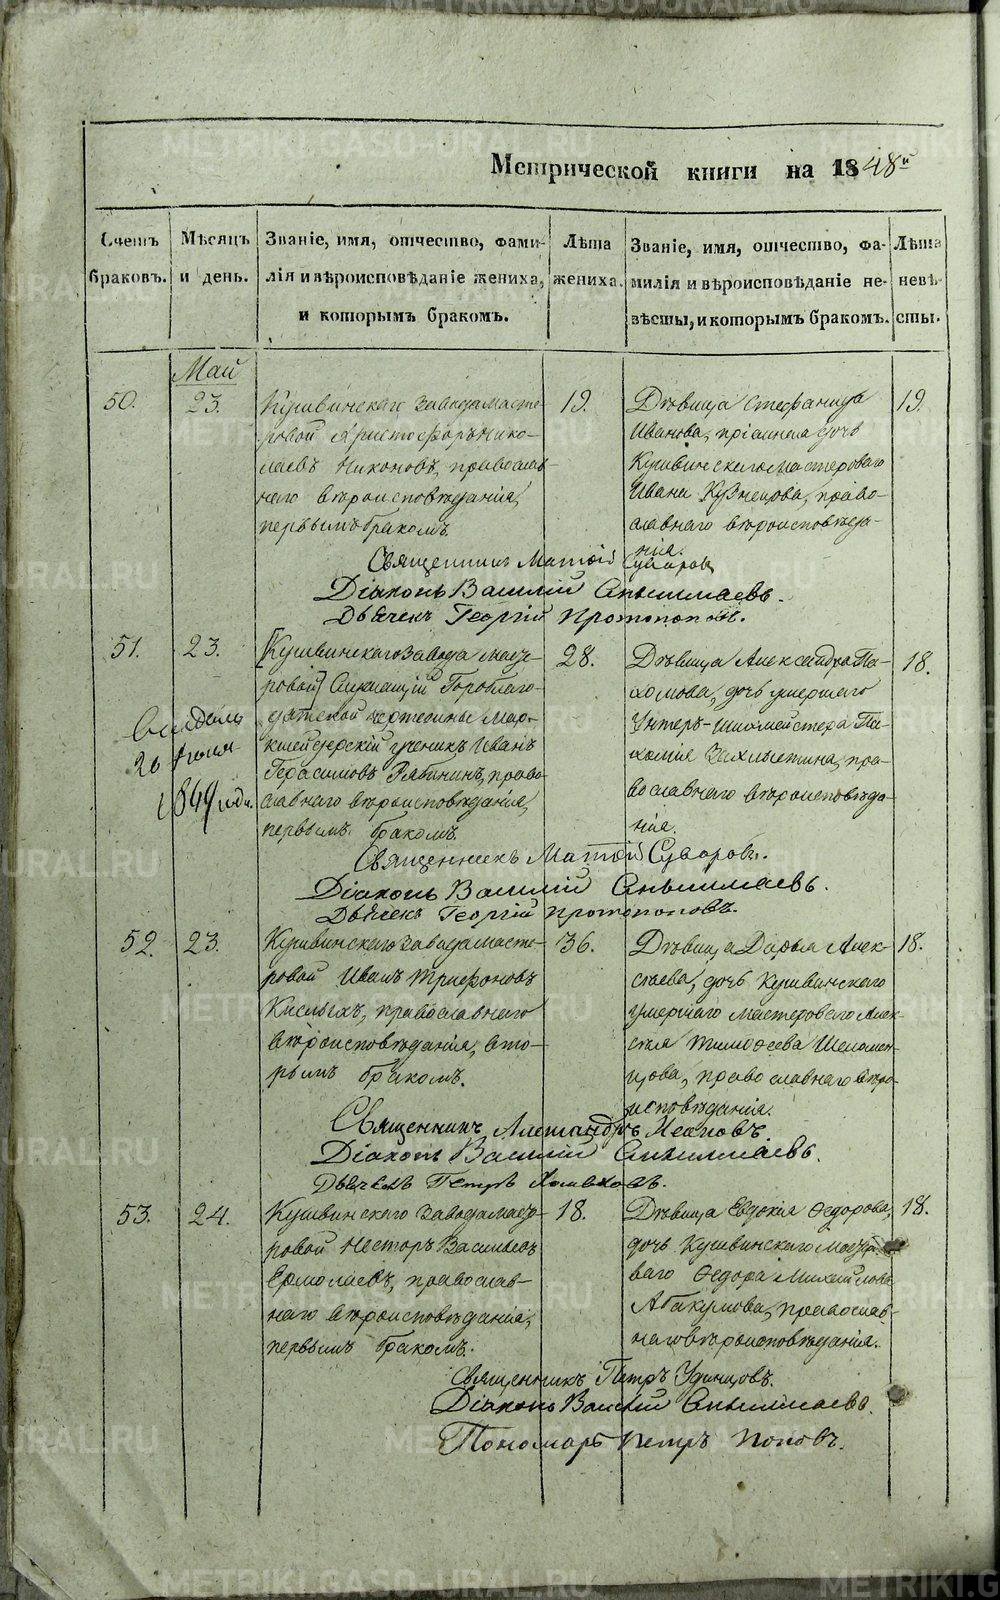 Метрической книги на 1848й
Счетъ браковъ.
Мѣсяцъ и день.
Званіе, имя, отчество, фами-
лія и вѣроисповѣданіе жениха,
и которымъ бракомъ.
Лѣта жениха.
Званіе, имя, отчество, фа-
милія и вѣроисповѣданіе не-
вѣсты, и которымъ бракомъ.
Лѣта невѣ-
сты.
Май
50.
23.
Кушвинскаго завода масте-
ровой Христофоръ Нико-
лаевъ Никоновъ, православ-
наго вѣроисповѣданія,
первымъ бракомъ.
19.
Дѣвица Стефанида
Иванова, дочь
Кушвинскаго мастероваго
Ивана Кузнецова, право-
славнаго вѣроисповѣда-
нія.
19.
Священникъ Матѳій Суворовъ
Діаконъ Василій
Дьячекъ Георгій Протопоповъ.
51.
23.
[Кушвинскаго завода масте-
ровой] Служащій Гороблаго-
датской чертежны Мар-
кшейдерскій ученикъ Иванъ
Герасимовъ Рябининъ, право-
славнаго вѣроисповѣданія,
первымъ бракомъ.
28.
Дѣвица Александра Па-
хомова, дочь умершаго
Унтеръ-Шихмейстера Па-
хомія, пра-
вославнаго вѣроисповѣда-
нія.
18.
1849 года
Священникъ Матѳій Суворовъ.
Діаконъ Василій
Дьячекъ Георгій Протопоповъ.
52.
23.
Кушвинскаго завода масте-
ровой Иванъ Трифоновъ
Кислыхъ, православнаго
вѣроисповѣданія, вто-
рымъ бракомъ.
36.
Дѣвица Дарья Алек-
сѣева, дочь Кушвинскаго
умершаго мастероваго Алек-
сѣя Тимоѳеева Шеломен-
цова, православнаго вѣро-
исповѣданія.
18.
Священникъ Александръ
Діаконъ Василій
Дьячекъ Петръ
53.
24.
Кушвинскаго завода масте-
ровой Несторъ Васильевъ
Ермолаевъ, православ-
наго вѣроисповѣданія,
первымъ бракомъ.
18.
Дѣвица Евдокія Ѳедорова,
дочь Кушвинскаго мастеро-
ваго Ѳедора Михайлова
Абакумова, православ-
наго вѣроисповѣданія.
18.
Священникъ Петръ Удинцовъ.
Діаконъ Василій
Пономарь Петръ Поповъ.
METRIKI.GASO-URAL.RU